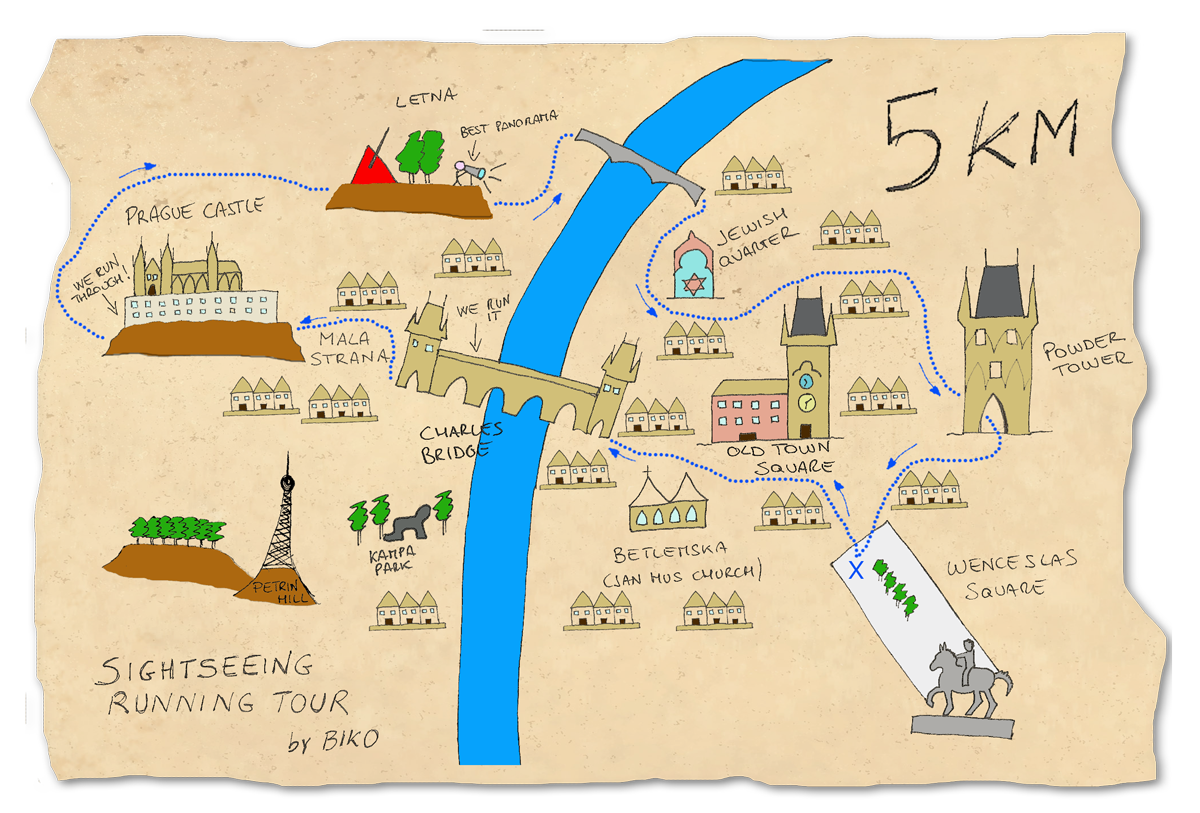 5 KM
LETNA
BEST PANORAMA
PRAGUE CASTLE
WE RUN
THROUGH!
JEWISH
QUARTER
WE RUN
IT
MALA
STRANA
POWDER
TOWER
CHARLES
BRIDGE
OLD TOWN
SQUARE
KAMPA
PARK
BETLEMSKA
(JAN HUS CHURCH)
X
WENCESLAS
SQUARE
PETRIN
HILL
SIGHTSEEING
RUNNING TOUR
by BIKO